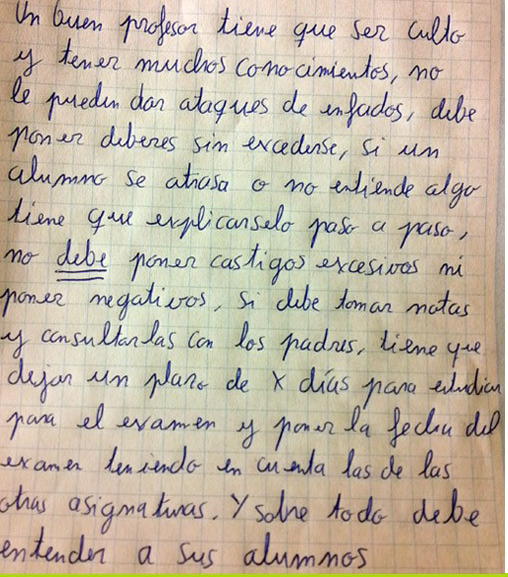 Un buen profesor tiene que ser culto
y tener muchos conocimientos, no
le pueden dar ataques de enfados, debe
poner deberes sin excederse, si un
alumno se atrasa o no entiende algo
tiene que explicarselo paso a paso,
no debe poner castigos excesivos ni
poner negativos, si debe tomar notas
y consultarlas con los padres, tiene que
dejar un plazo de X días para estudiar
para el examen y poner la fecha del
examen teniendo en cuenta las de las
otras asignaturas. Y sobre todo debe
entender a sus alumnos